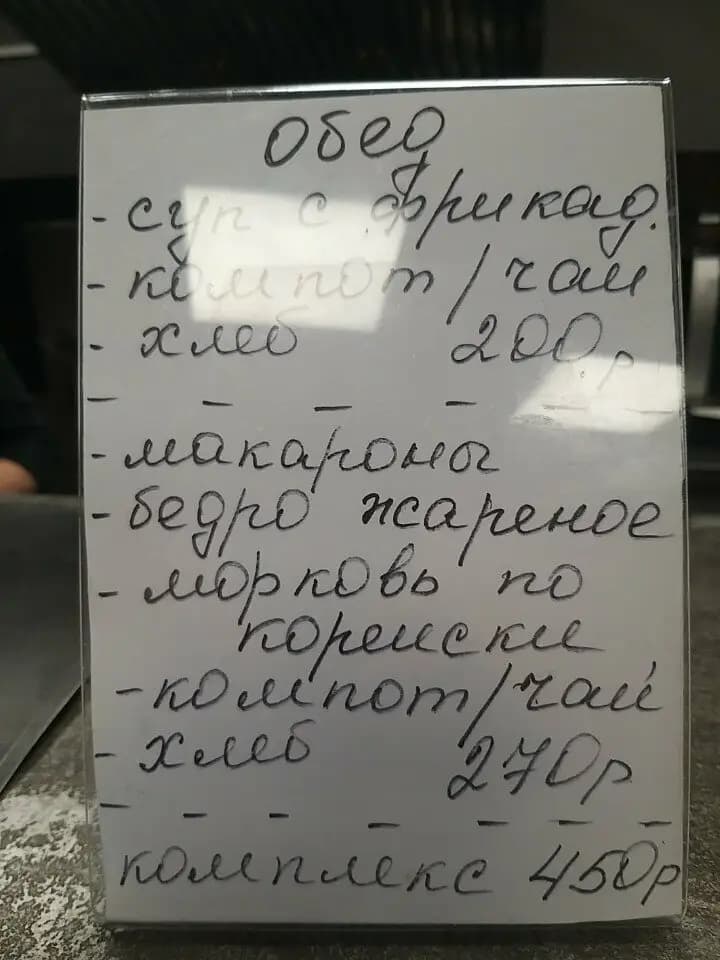 обед
- суп с фрикад.
- компот/чай
- хлеб 200р
- - - - - -
- макароны
- бедро жареное
- морковь по
корейски
- компот/чай
- хлеб 270р
- - - - - - -
комплекс 450р